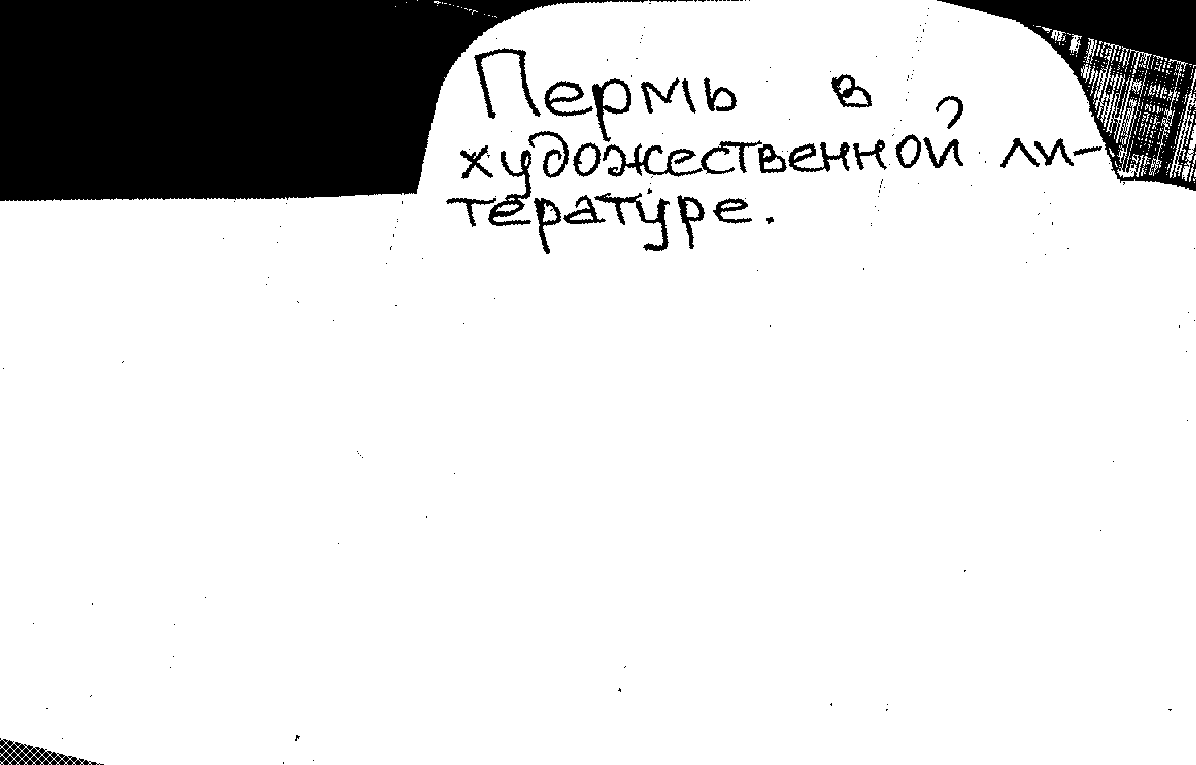 Пермь в
художественной ли-
тературе.